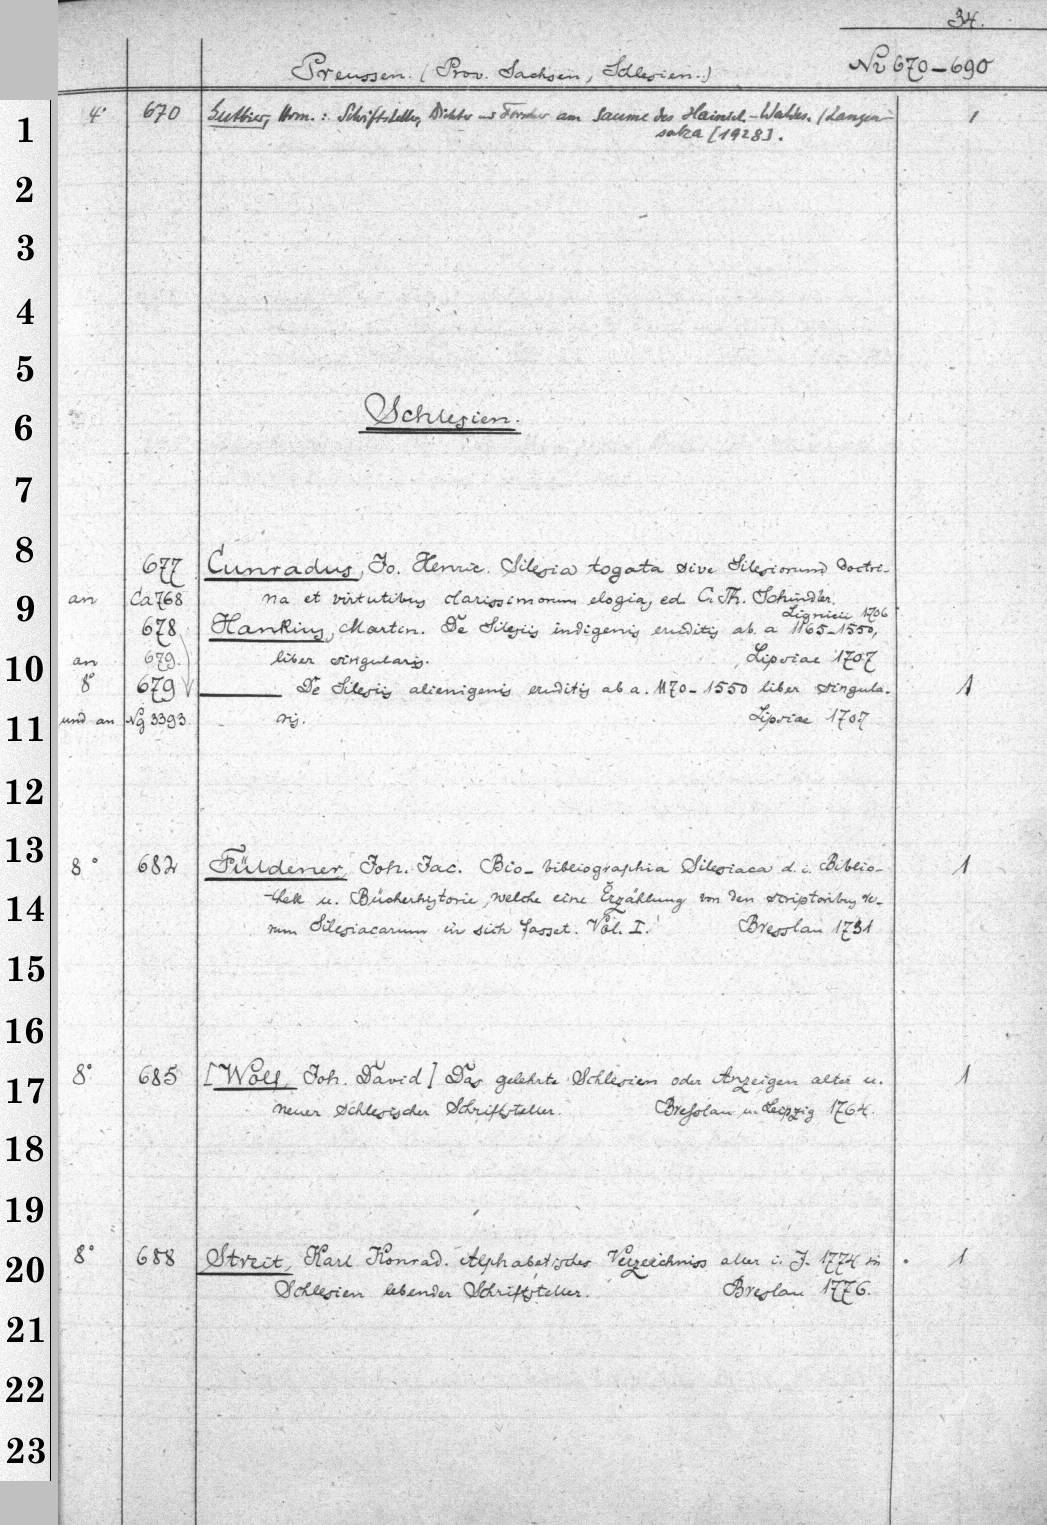 34.
Preussen. (Prov. Sachsen, Schlesien.)
Nr 670-690
1 4° 670 Gutbier, Herm.: Schriftsteller, Dichter und Forscher am Saume des Hainich-Waldes. (Langen- 1
salza [1928].
2
3
4
5
6 Schlesien.
7
8 677 Cunradus, Jo. Henric. Silesia togata sive Silesiorum doctri-
9 an Ca 768 na et virtutibus clarissimorum elogia, ed. C. Th. Schindler.
Lignicii 1706
678 Hankius, Martin. De Silesiis indigenis eruditis ab. a 1165-1550,
10 an 679. liber singularis. Lipsiae 1707
8° 679 De Silesiis alienigenis eruditis ab a. 1170-1550 liber singula- 1
11 und an Ng 3393 ris. Lipsiae 1707
12
13 8° 682 Füldener, Joh. Jac. Bio-bibliographia Silesiaca d. i. Biblio- 1
14 thek u. Bücherhistorie, welche eine Erzählung von den scriptoribus re-
rum Silesiacarum in sich fasset. Vol. I. Bresslau 1731
15
16
17 8° 685 [Woll, Joh. David] Das gelehrte Schlesien oder Anzeigen alter u. 1
neuer schlesischer Schriftsteller. Breslau u. Leipzig 1764.
18
19
20 8° 688 Streit, Karl Konrad. Alphabetisches Verzeichniss aller i. J. 1774 in 1
Schlesien lebender Schriftsteller. Breslau 1776.
21
22
23